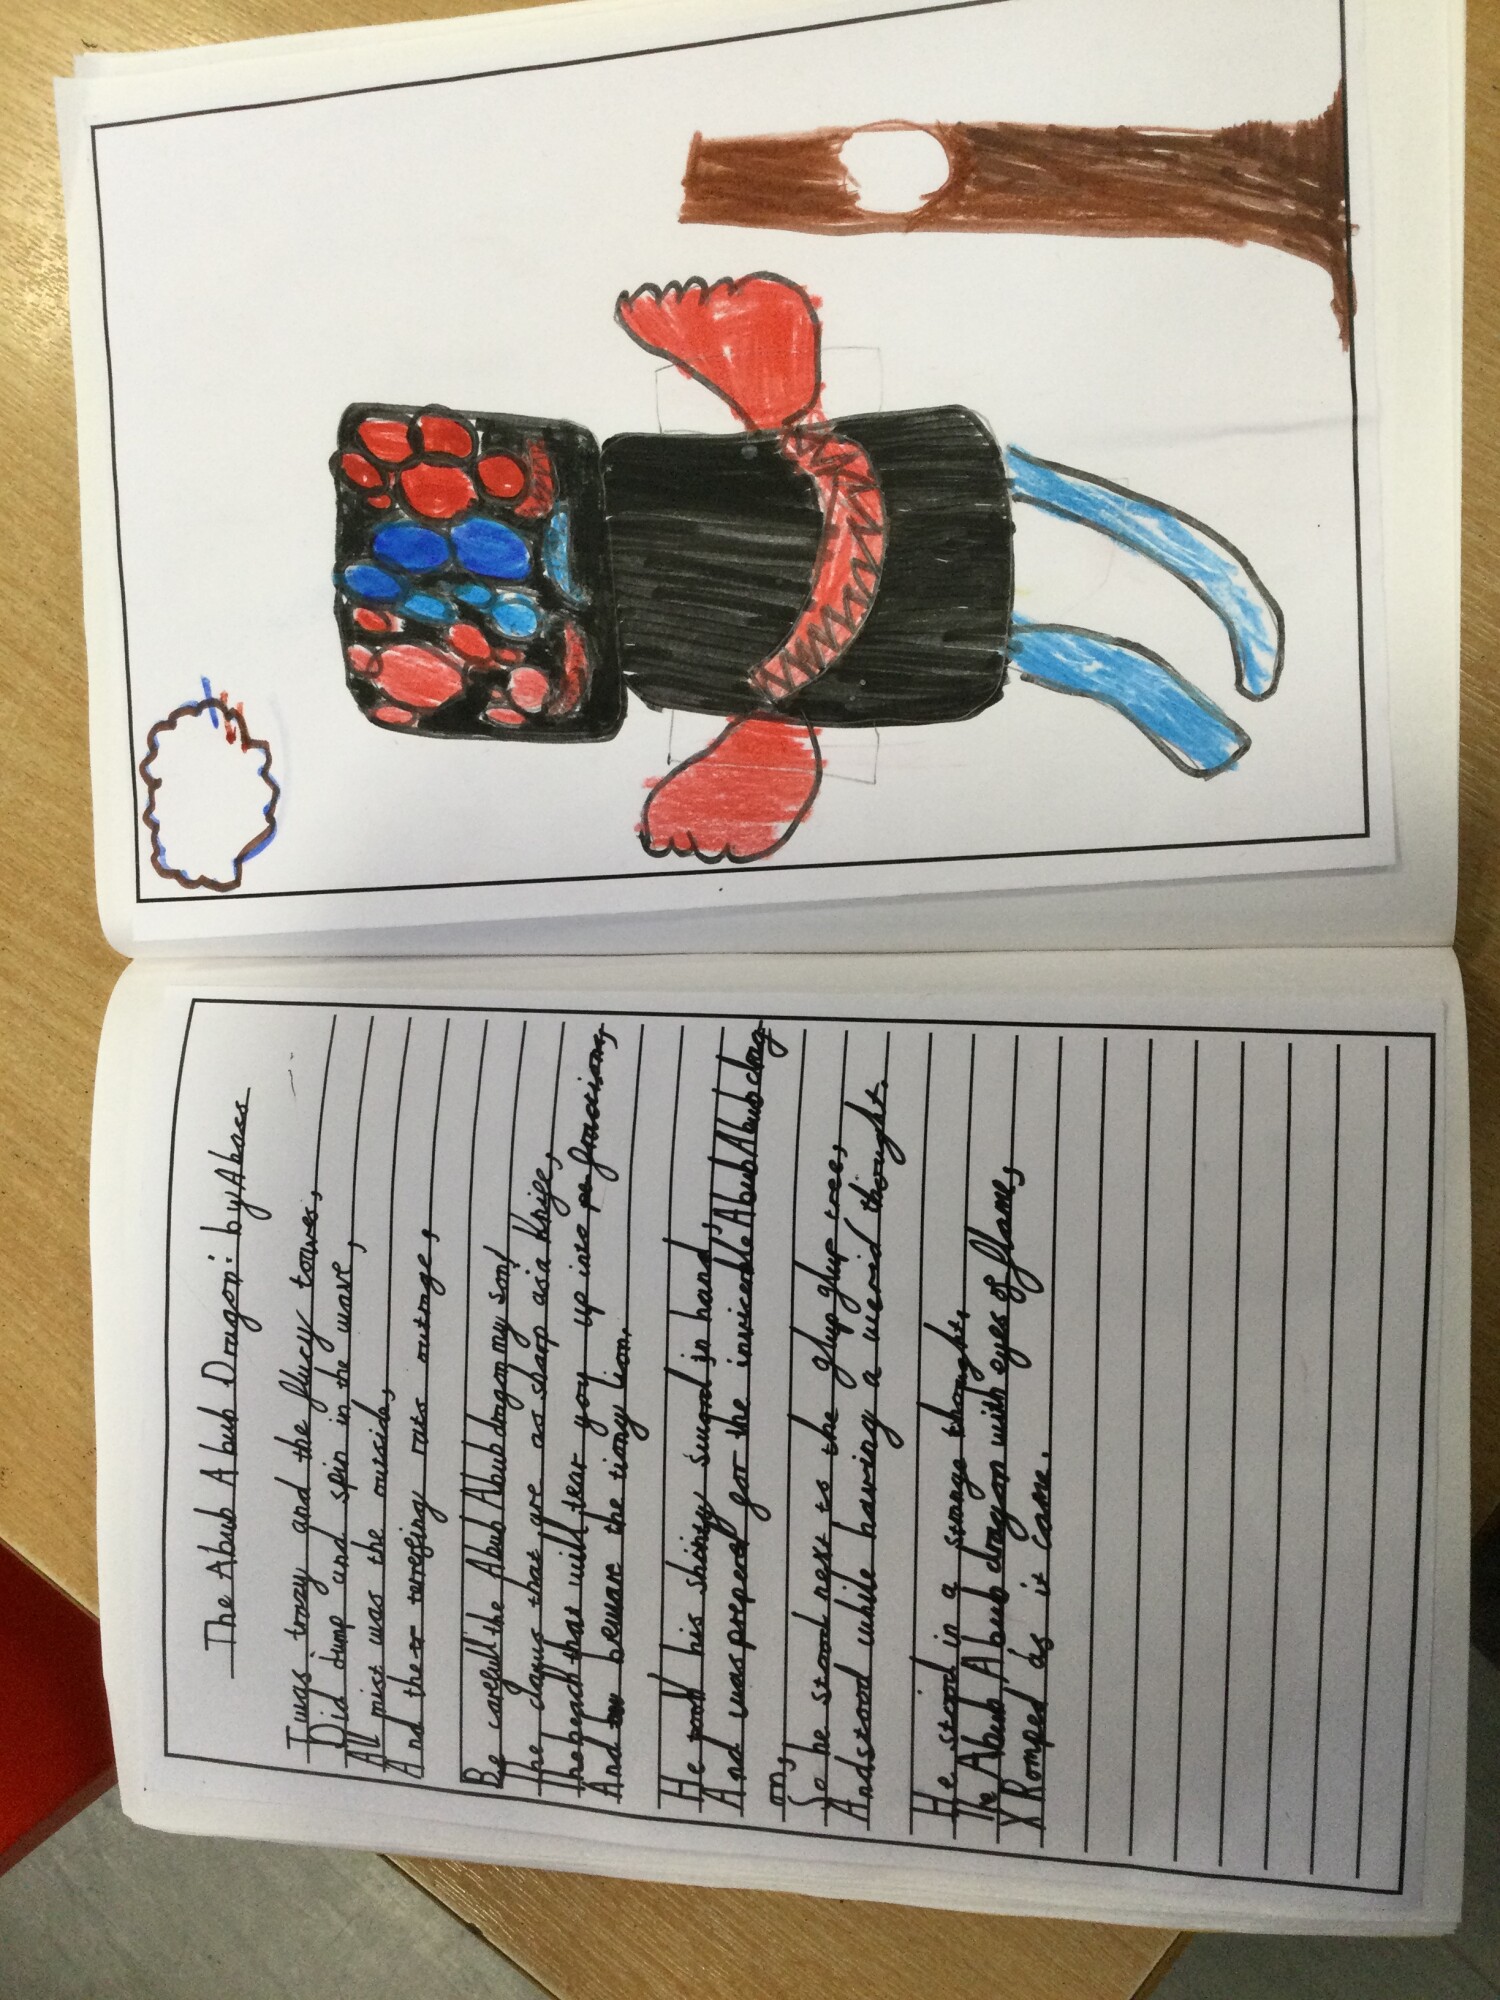 The Abub Abub Dragon: by Abass
Twas trozy and the flucy towes,
Did dump and spin in the wave,
All mist was the outside,
And the terrefing rats outrage,
Be carefull the Abub Abub dragon my son!
The claws that are as sharp as a knife,
The beach that will tear you up into fracions,
And beware the timy lion.
He took his shiney sword in hand,
And was prepered gor the invicenble Abub Abub drag
on,
So he stood next to the glup glup tree,
And stood while having a weird thought.
He stood in a strange thought,
The Abub Abub dragon with eyes of flame,
X Romped as it came.